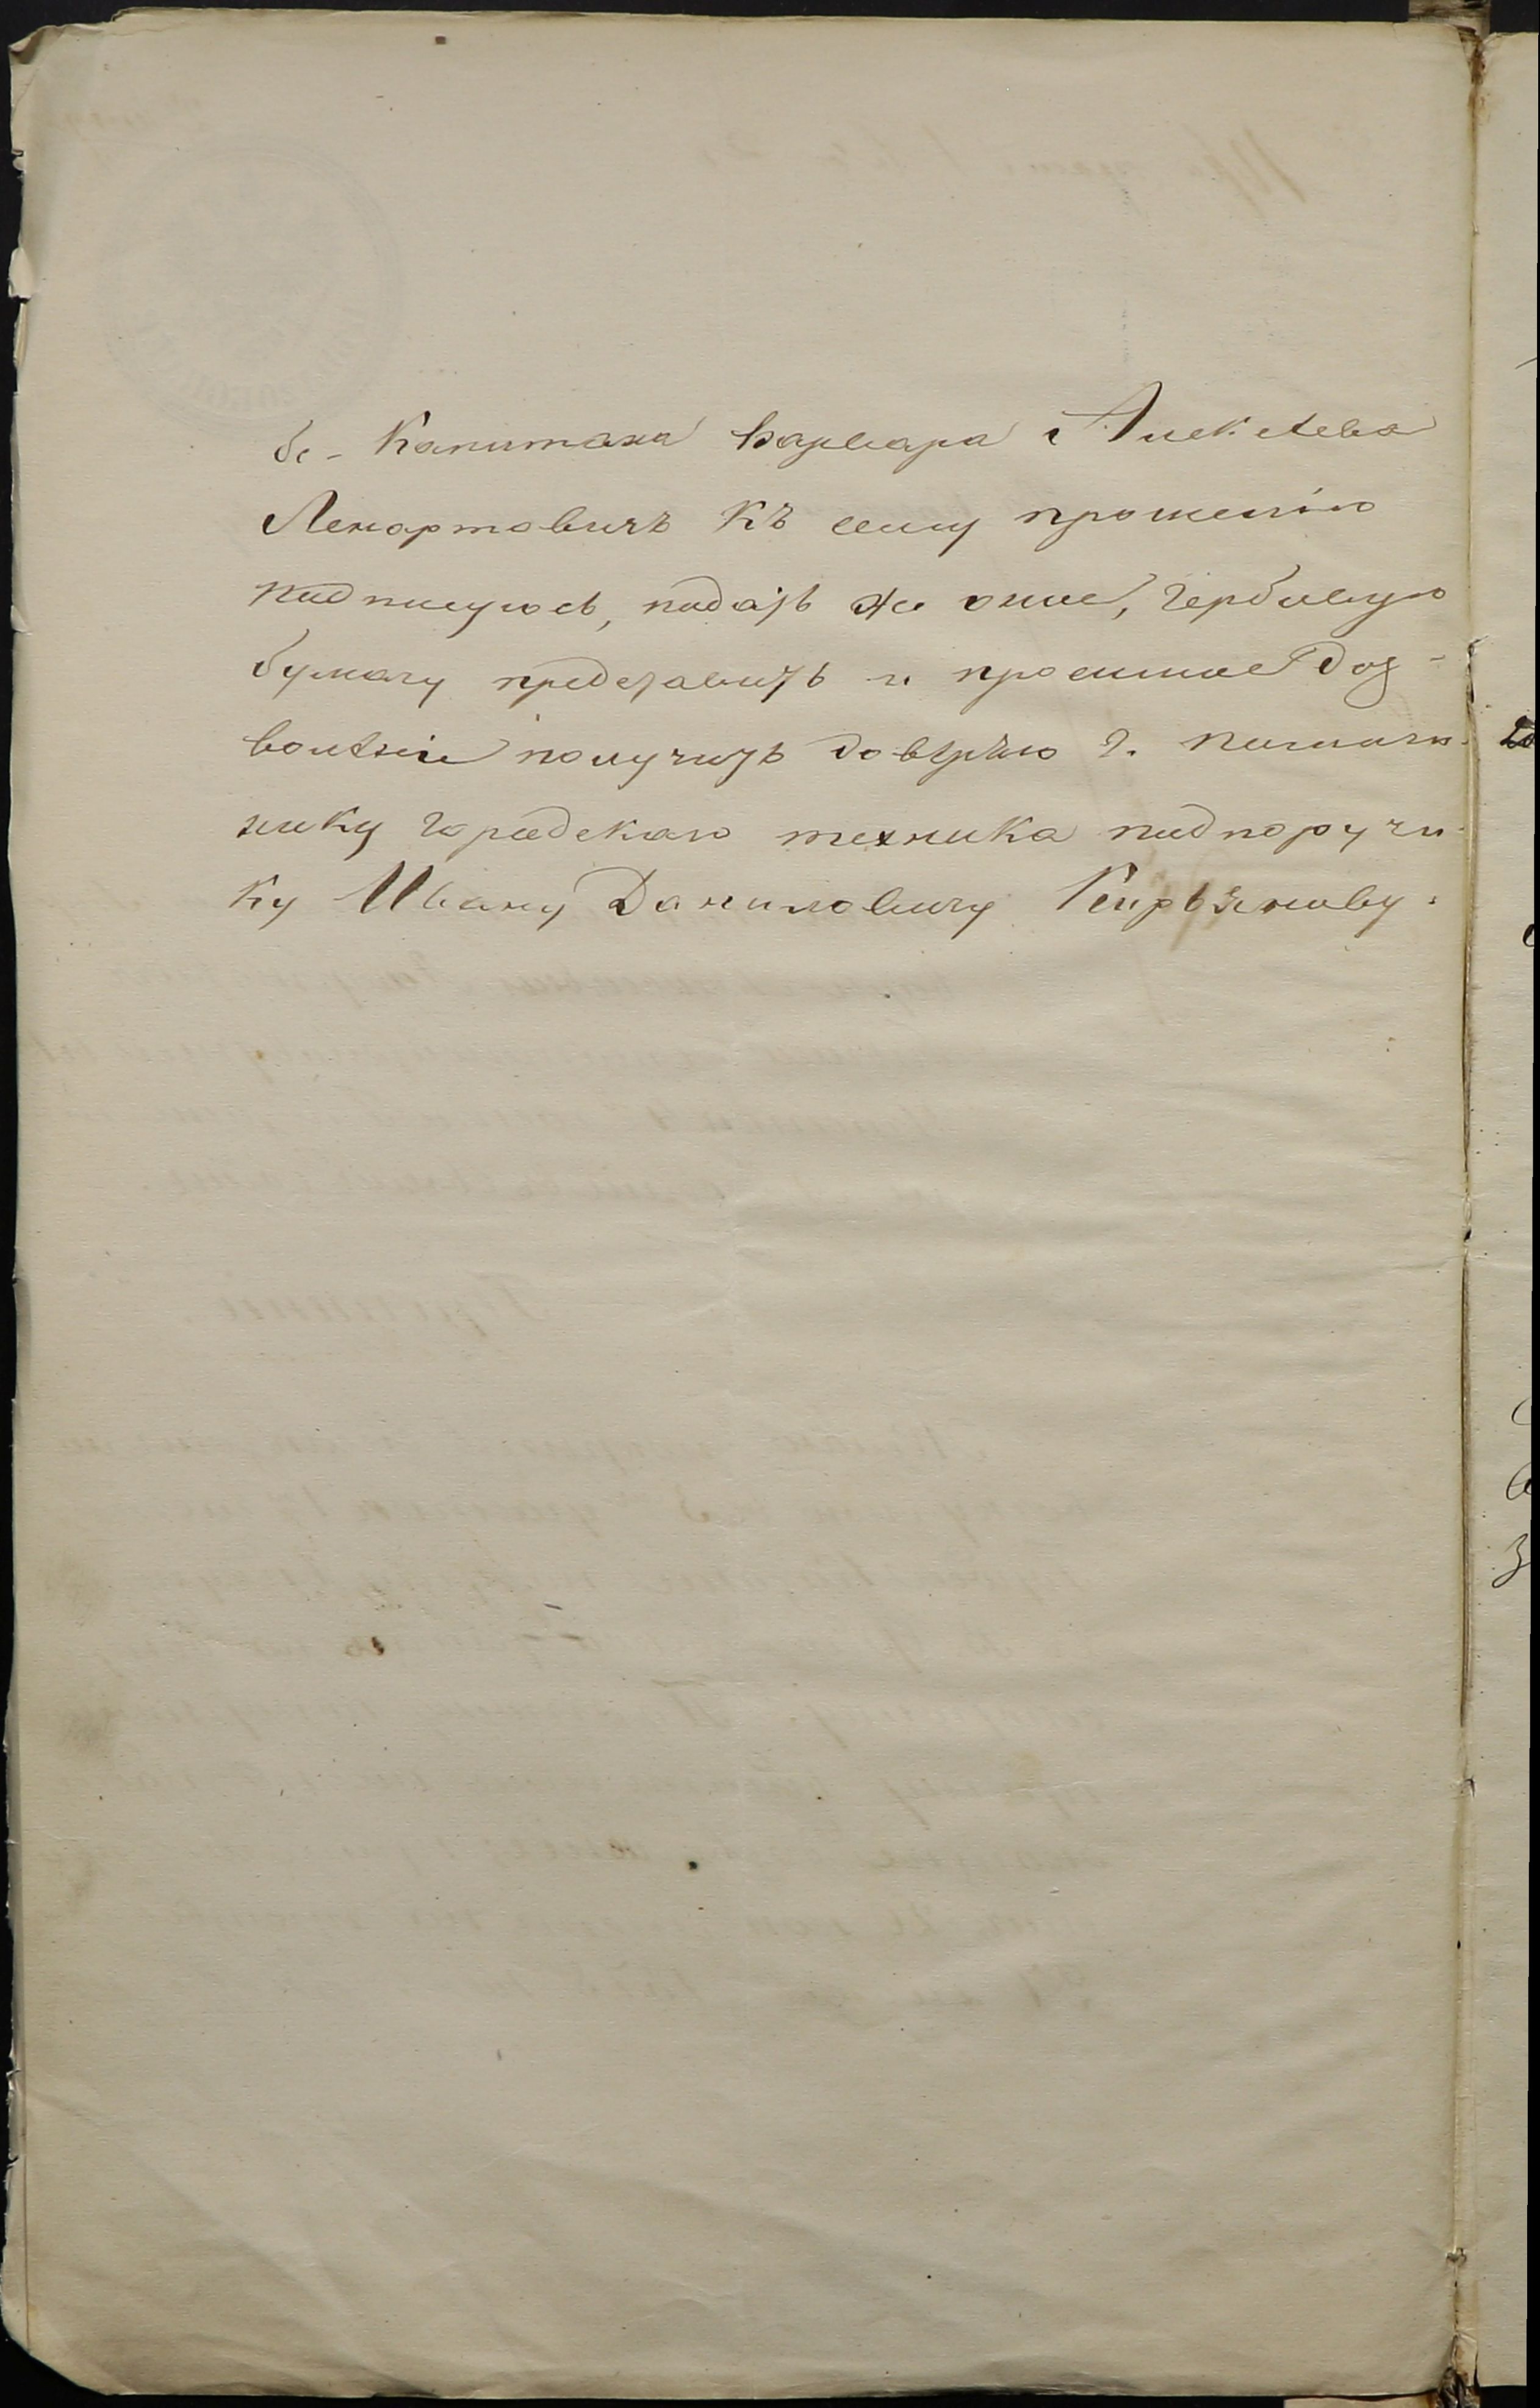 Капитана Варвара Алексѣева
Ленартовичъ къ сему прошенію
подписуюсь, подать же оное, гербовую
бумагу представить и просимое доз-
воленіе получить довѣряю г. помощ-
нику городскаго техника подпоручи-
ку Ивану Даниловичу